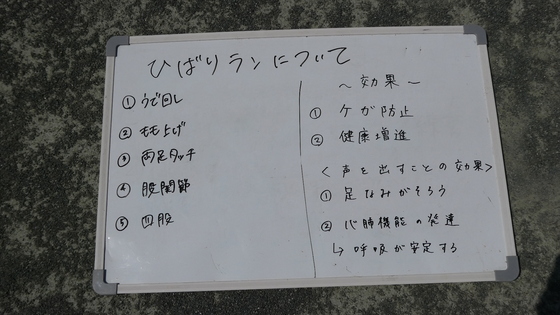 ひばりランについて
① うで回し
② もも上げ
③ 両足タッチ
④ 股関節
⑤ 四股
～効果～
① ケガ防止
② 健康増進
<声を出すことの効果>
① 足なみがそろう
② 心肺機能の発達
↳ 呼吸が安定する